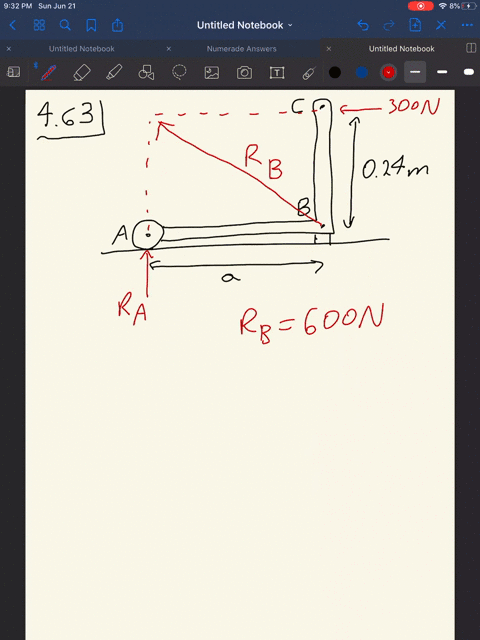 9:32 PM Sun Jun 21
8%
Untitled Notebook
Untitled Notebook
Numerade Answers
Untitled Notebook
4.63
C
300N
R_B
0.24m
B
A
a
R_A
R_B = 600N